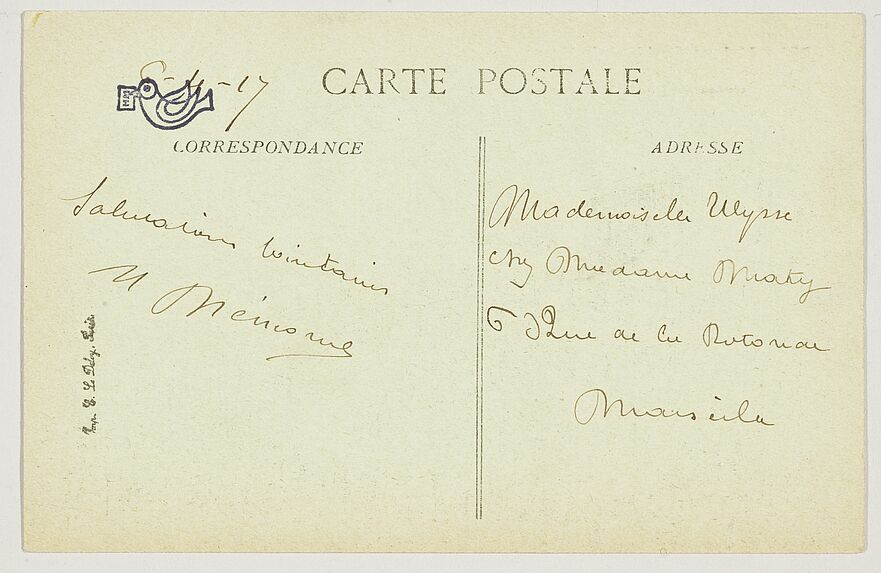 8-4-17
CARTE POSTALE
CORRESPONDANCE
Salutations lointaines
Imp. E. Le Deley, Paris
ADRESSE
Mademoiselle Ulysse
chez Madame Maty
6 Rue de la Rotonde
Marseille